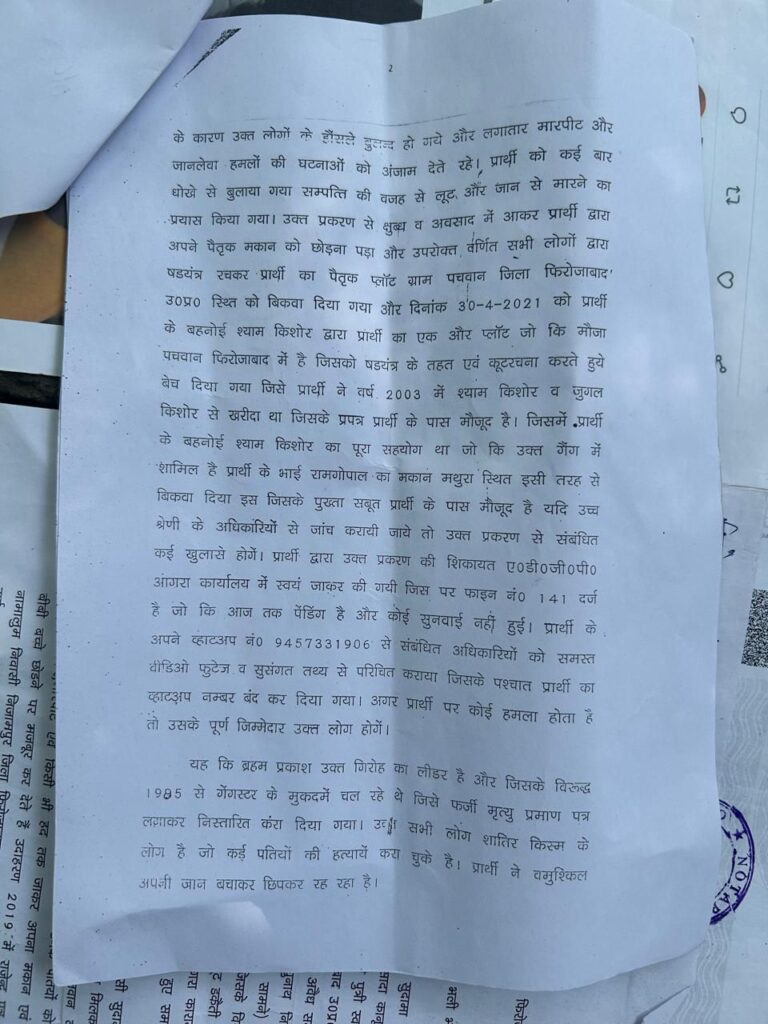 2
के कारण उक्त लोगों के हौंसले बुलन्द हो गये और लगातार मारपीट और
जानलेवा हमलों की घटनाओं को अंजाम देते रहे। प्रार्थी को कई बार
धोखे से बुलाया गया सम्पत्ति की वजह से लूट और जान से मारने का
प्रयास किया गया। उक्त प्रकरण से क्षुब्ध व अवसाद में आकर प्रार्थी द्वारा
अपने पैतृक मकान को छोड़ना पड़ा और उपरोक्त वर्णित सभी लोगों द्वारा
षडयंत्र रचकर प्रार्थी का पैतृक प्लॉट ग्राम पचवान जिला फिरोजाबाद
उ0प्र0 स्थित को बिकवा दिया गया और दिनांक 30-4-2021 को प्रार्थी
के बहनोई श्याम किशोर द्वारा प्रार्थी का एक और प्लॉट जो कि मौजा
पचवान फिरोजाबाद में है जिसको षडयंत्र के तहत एवं कूटरचना करते हुये
बेच दिया गया जिसे प्रार्थी ने वर्ष 2003 में श्याम किशोर व जुगल
किशोर से खरीदा था जिसके प्रपत्र प्रार्थी के पास मौजूद है। जिसमें प्रार्थी
के बहनोई श्याम किशोर का पूरा सहयोग था जो कि उक्त गैंग में
शामिल है प्रार्थी के भाई रामगोपाल का मकान मथुरा स्थित इसी तरह से
बिकवा दिया इस जिसके पुख्ता सबूत प्रार्थी के पास मौजूद है यदि उच्च
श्रेणी के अधिकारियों से जांच करायी जाये तो उक्त प्रकरण से संबंधित
कई खुलासे होगें। प्रार्थी द्वारा उक्त प्रकरण की शिकायत ए0डी0जी0पी0
आगरा कार्यालय में स्वयं जाकर की गयी जिस पर फाइन नं0 141 दर्ज
है जो कि आज तक पेंडिंग है और कोई सुनवाई नहीं हुई। प्रार्थी के
अपने व्हाटअप नं0 9457331906 से संबंधित अधिकारियों को समस्त
वीडिओ फुटेज व सुसंगत तथ्य से परिचित कराया जिसके पश्चात प्रार्थी का
व्हाटअप नम्बर बंद कर दिया गया। अगर प्रार्थी पर कोई हमला होता है
तो उसके पूर्ण जिम्मेदार उक्त लोग होगें।
यह कि ब्रहम प्रकाश उक्त गिरोह का लीडर है और जिसके विरुद्ध
1985 से गेंगस्टर के मुकदमें चल रहे थे जिसे फर्जी मृत्यु प्रमाण पत्र
लगाकर निस्तारित करा दिया गया। सभी लोग शातिर किस्म के
लोग है जो कई पतियों की हत्यायें करा चुके है। प्रार्थी ने वमुश्किल
अपनी जान बचाकर छिपकर रह रहा है।